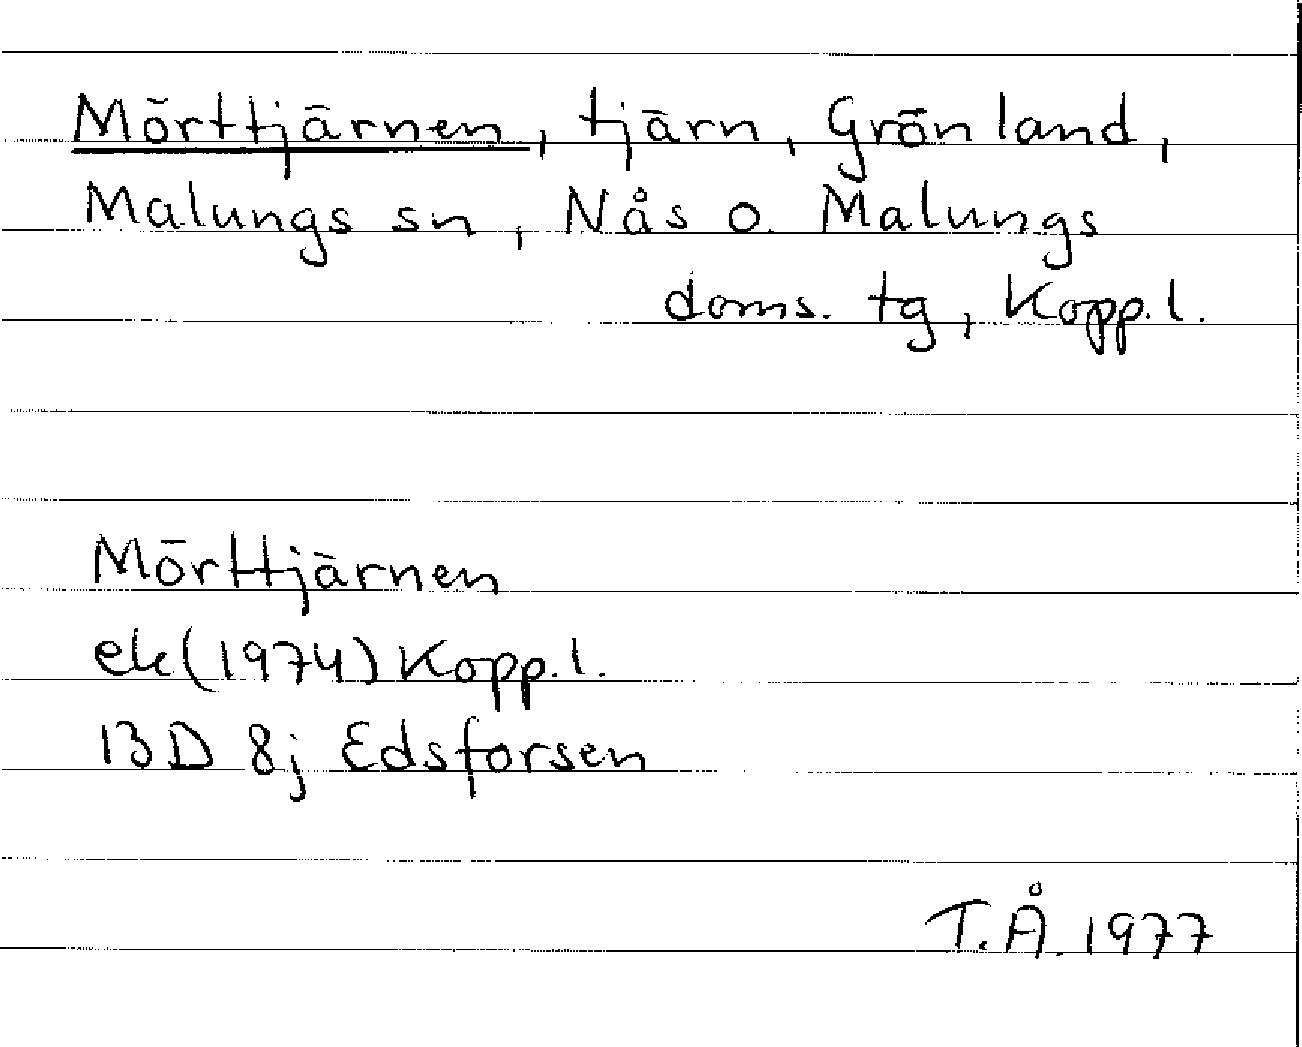 Mörttjärnen, tjärn, Grönland,
Malungs sn, Nås o. Malungs
doms. tg, Kopp.l.
Mörttjärnen
ek(1974) Kopp.l.
13D 8j Edsforsen
T.Å. 1977